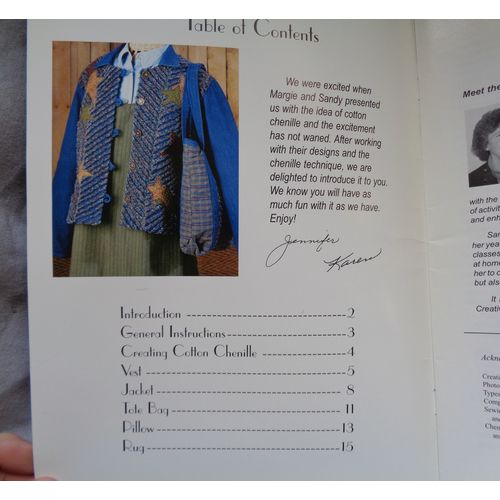 Table of Contents
We were excited when
Margie and Sandy presented
us with the idea of cotton
chenille and the excitement
has not waned. After working
with their designs and the
chenille technique, we are
delighted to introduce it to you.
We know you will have as
much fun with it as we have.
Enjoy!
Jennifer
Karen
Introduction ---------------------------- 2
General Instructions--------------------- 3
Creating Cotton Chenille ---------------- 4
Vest ------------------------------------ 5
Jacket ---------------------------------- 8
Tote Bag -------------------------------- 11
Pillow----------------------------------- 13
Rug-------------------------------------- 15
Meet the
with the
of activit
and enh
San
her yea
classes
at home
her to c
but also
It
Creativ
Ackno
Creati
Photo
Types
Comp
Sewin
and
Chen
and